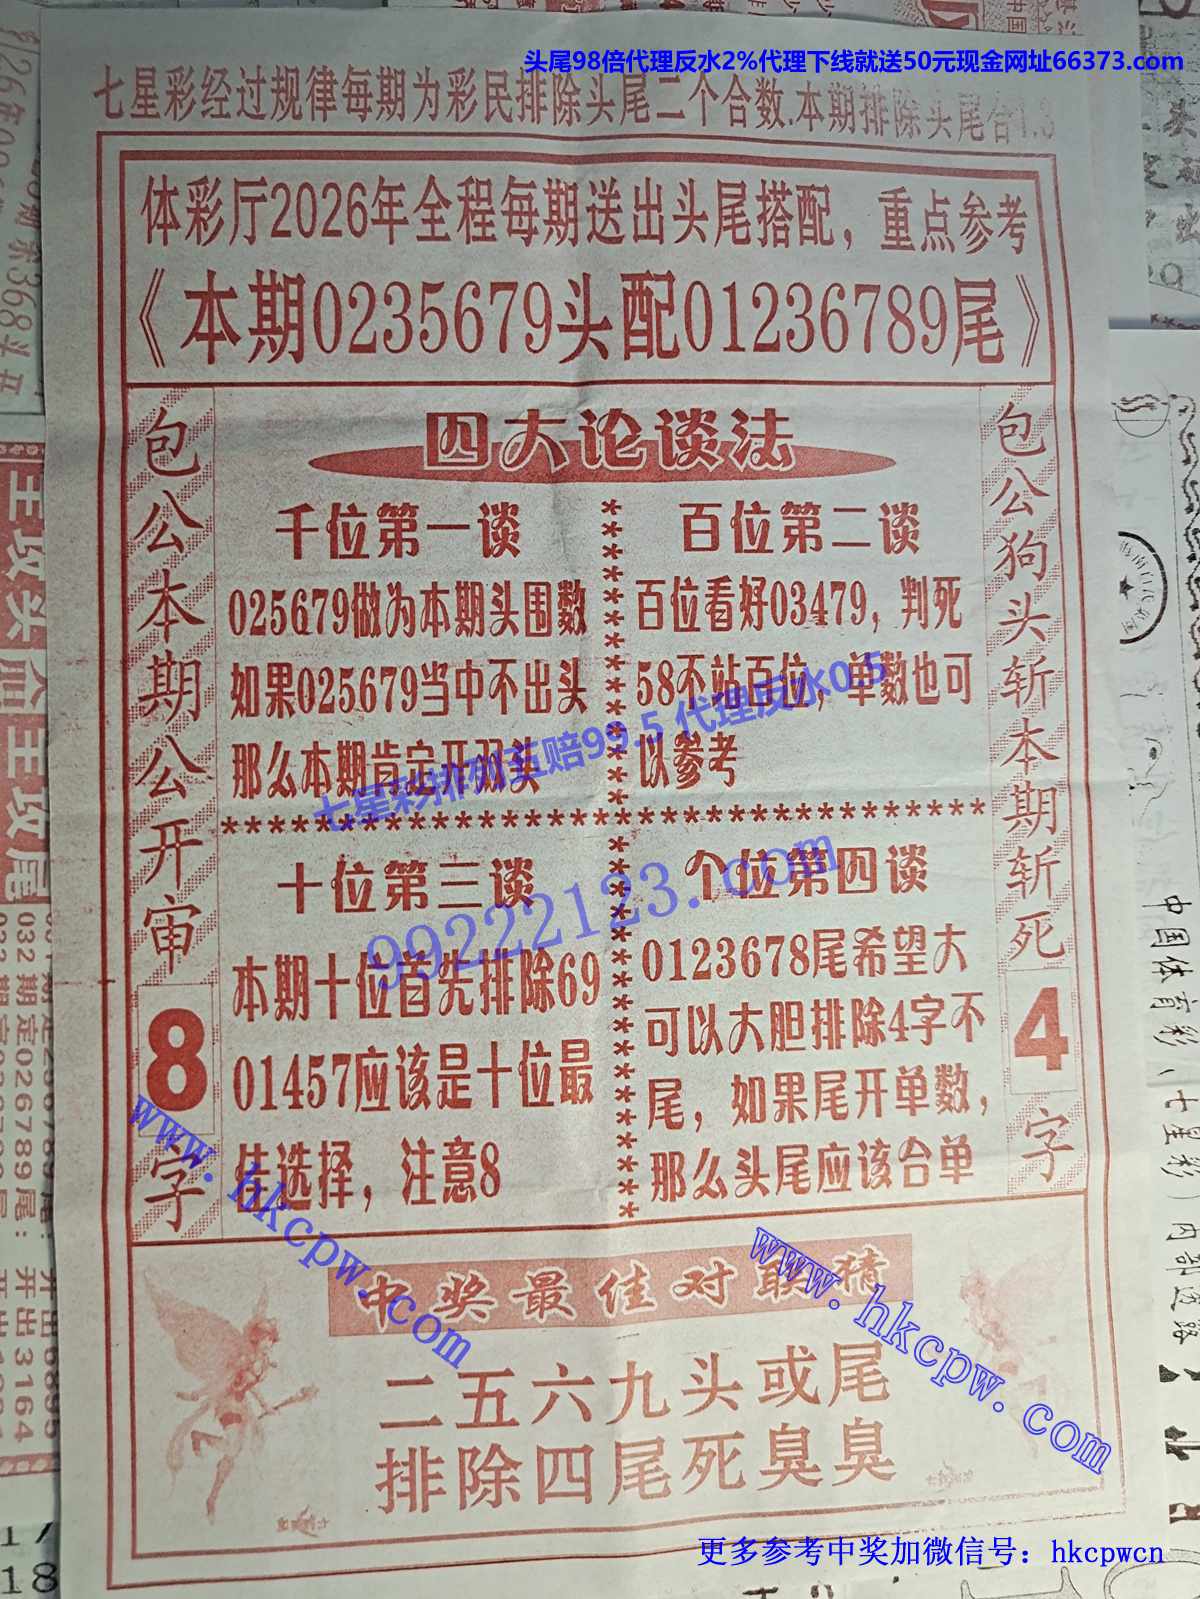 头尾98倍代理反水2%代理下线就送50元现金网址66373.com
七星彩经过规律每期为彩民排除头尾二个合数.本期排除头尾合1.3
体彩厅2026年全程每期送出头尾搭配，重点参考
《本期0235679头配01236789尾》
包公本期公开审8字
四大论谈法
千位第一谈
025679做为本期头围数
如果025679当中不出头
那么本期肯定开双头
百位第二谈
百位看好03479，判死
58不站百位，单数也可
以参考
七星彩排列五赔99.5 代理反水0.5
********************************
十位第三谈
本期十位首先排除69
01457应该是十位最
佳选择，注意8
个位第四谈
0123678尾希望大
可以大胆排除4字不
尾，如果尾开单数，
那么头尾应该合单
99222123.com
包公狗头斩本期斩死4字
www.hkcpw.com
www.hkcpw.com
中奖最佳对联猜
二五六九头或尾
排除四尾死臭臭
更多参考中奖加微信号：hkcpwcn
中国体育彩(七星彩)内部透路
主攻头
主攻尾